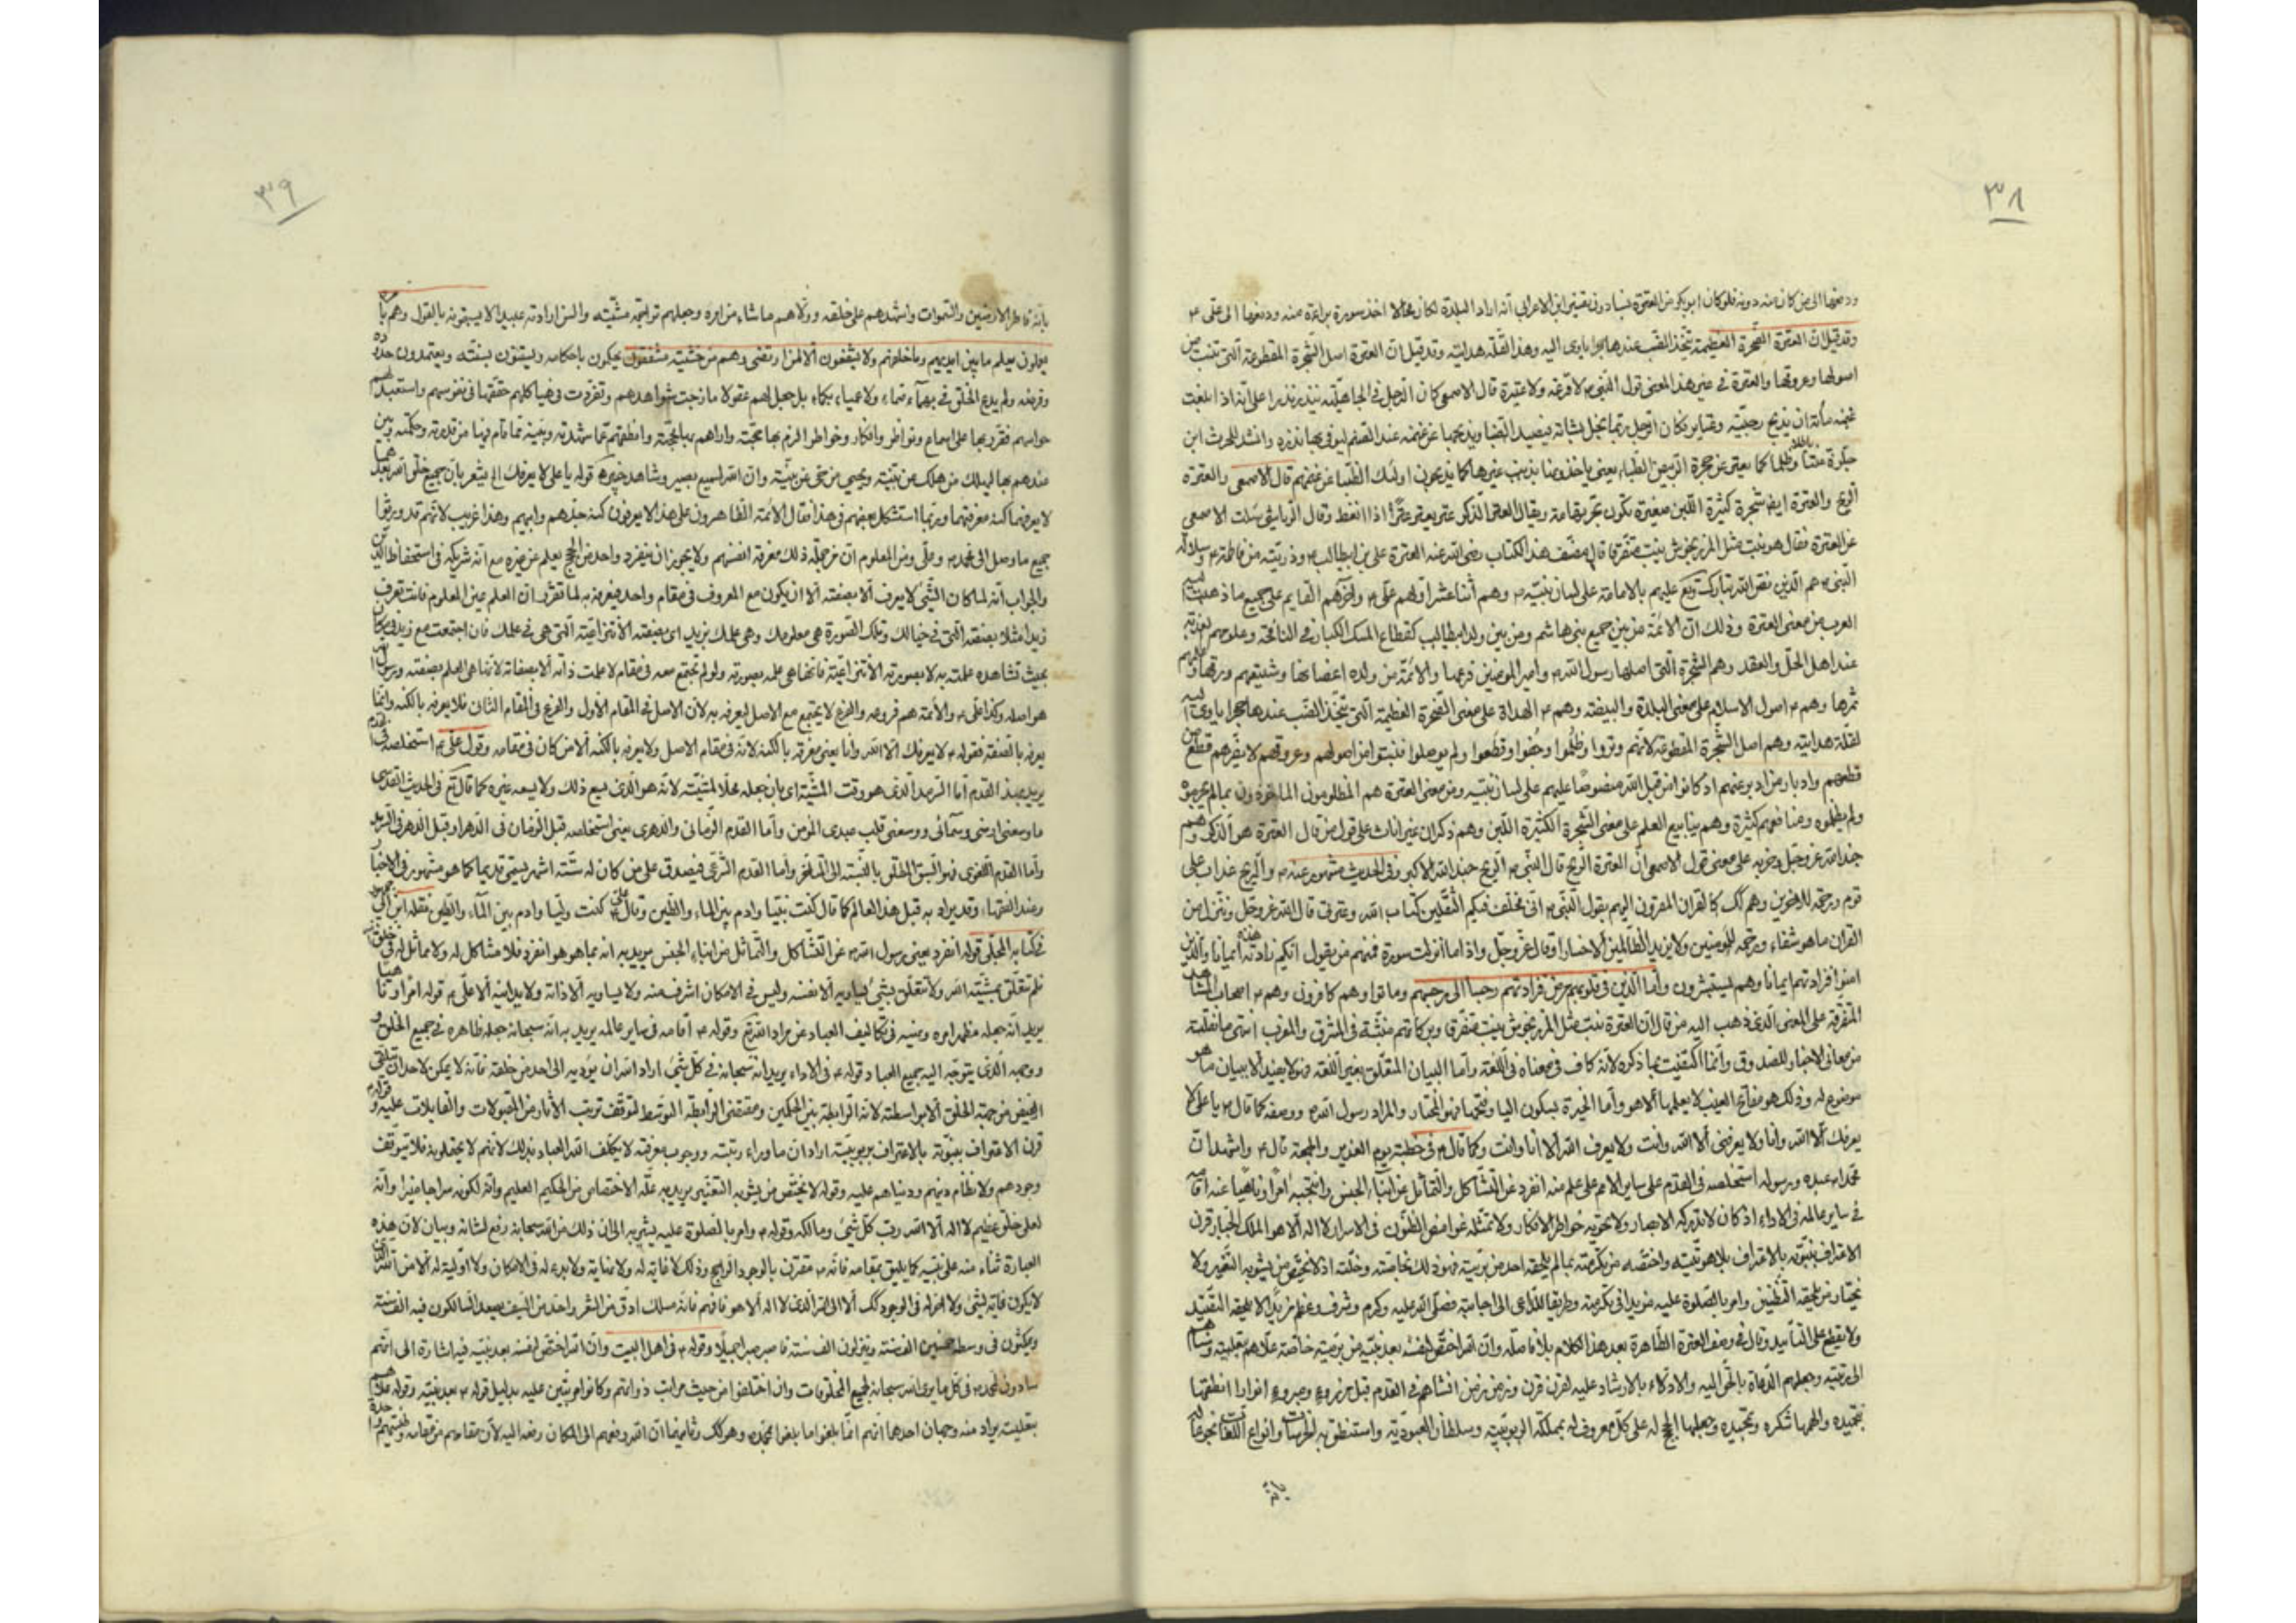 ٣٨
ودفعها الى من كان منه دونه فلو كان ابو بكر من العترة نسبا دون تفسير ابن الاعرابي انه اراد البلدة لكان محالا اخذ سورة براءة منه ودفعها الى علي ع
وقد قيل ان العترة الصخرة العظيمة يتخذ الضب عندها جحرا يأوى اليه وهذا لقلة هدايته وقد قيل ان العترة اصل الشجرة المقطوعة التي تنبت من
اصولها وعروقها والعترة في غير هذا المعنى قول النبي ص لا فرعة ولا عتيرة قال الاصمعي كان الرجل في الجاهلية ينذر نذرا على انه اذا بلغت
غنمه مائة ان يذبح رجبيته وعتايره فكان الرجل ربما بخل بشاته فيصيد الظبا ويذبحها عن غنمه عند الصنم ليوفى بها نذره وانشد الحرث ابن
حلزة عنتا باطلا وظلما كما يعتر عن حجرة الربيض الظباء يعنى ياخذونها بذنب غيرها كما يذبحون اولئك الظبا عن غنمهم قال الاصمعي والعترة
الريح والعترة ايضا شجرة كثيرة اللبن صغيرة يكون نحو القامة ويقال العتر الذكر عتر يعتر عترا اذا انعظ وقال الرياشى سئلت الاصمعي
عن العترة فقال هو نبت مثل المرزنجوش ينبت متفرقا قال مصنف هذا الكتاب رضى الله عنه العترة على بن ابيطالب ع وذريته من فاطمة ع وسلالة
النبى ص هم الذين نص الله تبارك وتع عليهم بالامامة على لسان نبيه ص وهم اثنا عشر اولهم على ع واخرهم القايم على جميع ما ذهبت اليه
العرب من معنى العترة وذلك ان الائمة من بين جميع بنى هاشم ومن بين ولد ابيطالب كقطاع المسك الكبار في النافجة وعلومهم العذبة
عند اهل الحل والعقد وهم الشجرة التي اصلها رسول الله ص وامير المؤمنين فرعها والائمة من ولده اغصانها وشيعتهم ورقها وعلمهم
ثمرها وهم ع اصول الاسلام على معنى البلدة والبيضة وهم ع الهداة على معنى الصخرة العظيمة التي يتخذ الضب عندها جحرا ياوى اليه
لقلة هدايته وهم اصل الشجرة المقطوعة لانهم وتروا وظلموا وجفوا وقطعوا ولم يوصلوا فنبتوا من اصولهم وعروقهم لا يضرهم قطع من
قطعهم وادبار من ادبر عنهم اذ كانوا من قبل الله منصوصا عليهم على لسان نبيه ومن معنى العترة هم المظلومون الماخوذون بما لم يجرموه
ولم يفعلوه ومنافعهم كثيرة وهم ينابيع العلم على معنى الشجرة الكثيرة اللبن وهم ذكران غير اناث على قول من قال العترة هو الذكر وهم
جند الله عز وجل وحزبه على معنى قول الاصمعي ان العترة الريح قال النبي ص الريح جند الله الاكبر وفي الحديث مشهور عنه ص والريح عذاب على
قوم ورحمة للاخرين وهم كك كالقران المقرون اليهم بقول النبى ص انى مخلف فيكم الثقلين كتاب الله وعترتى قال الله عز وجل وننزل من
القران ما هو شفاء ورحمة للمؤمنين ولا يزيد الظالمين الا خسارا وقال عز وجل واذا ما انزلت سورة فمنهم من يقول ايكم زادته هذه ايمانا فاما الذين
امنوا فزادتهم ايمانا وهم يستبشرون واما الذين في قلوبهم مرض فزادتهم رجسا الى رجسهم وماتوا وهم كافرون وهم ع اصحاب المشاهد
المتفرقة على المعنى الذى ذهب اليه من قال ان العترة نبت مثل المرزنجوش ينبت متفرق وبركاتهم منبثة في المشرق والمغرب انتهى ما نقلته
من معانى الاخبار للصدوق وانما اكتفيت بما ذكره لانه كاف في معناه في اللغة واما البيان المتعلق بغير اللغة فهو لا يفيد الا ببيان ما هو
موضوع له وذلك هو مفاتح الغيب لا يعلمها الا هو واما الخيرة بسكون اليا وفتحها فهو المختار والمراد رسول الله ص ووصفه كما قال ص يا على لا
يعرفك الا الله وانا ولا يعرفنى الا الله وانت ولا يعرف الله الا انا وانت وكما قال ع في خطبته يوم الغدير والجمعة قال ع واشهد ان
محمدا عبده ورسوله استخلصه في القدم على ساير الامم على علم منه انفرد عن التشاكل والتماثل من ابناء الجنس وانتجبه امرا وناهيا عنه اقامه
في ساير عالمه في الاداء اذ كان لا تدركه الابصار ولا تحويه خواطر الافكار ولا تمثله غوامض الظنون في الاسرار لا اله الا هو الملك الجبار قرن
الاعتراف بنبوته بالاعتراف بلاهوتيته واختصه من تكرمته بما لم يلحقه احد من بريته فهو ذلك بخاصته وخلته اذ لا يختص من يشوبه التغيير ولا
يختار من يلحقه التظنين وامر بالصلوة عليه مزيدا في تكرمته وطريقا للداعى الى اجابته فصلى الله عليه وكرم وشرف وعظم مزيدا لا يلحقه التفنيد
ولا ينقطع على التأبيد وقال في وصف العترة الطاهرة بعد هذا الكلام بلا فاصلة وان الله اختص لنفسه بعد نبيه من بريته خاصة علاهم بتعليته وسما بهم
الى رتبته وجعلهم الدعاة بالحق اليه والادلاء بالارشاد عليه لقرن قرن وزمن زمن انشاهم في القدم قبل كل مذروء ومبروء انوارا انطقها
بتحميده والهمها شكره وتمجيده وجعلها الحجج له على كل معروف له بملكة الربوبية وسلطان العبودية واستنطق بها الخرسات بانواع اللغات بخوعا له
بانه
٣٩
بانه فاطر الارضين والسموات واشهدهم على خلقه وولاهم ما شاء من امره وجعلهم تراجمة مشيته والسن ارادته عبيدا لا يسبقونه بالقول وهم بامره
يعملون يعلم ما بين ايديهم وما خلفهم ولا يشفعون الا لمن ارتضى وهم من خشيته مشفقون يحكمون باحكامه ويستنون بسنته ويعتمدون حدوده
وفرضه ولم يدع الخلق في بهماء صماء ولا عمياء بكماء بل جعل لهم عقولا مازجت شواهدهم وتفردت في هياكلهم حققها في نفوسهم واستعبد لها
حواسهم فقرر بها على اسماع ونواظر وافكار وخواطر الزمهم بها حجته واراهم بها محجته وانطقهم عما شهدته وبينته بما قام فيها من قدرته وحكمته وبين
عندهم بها ليهلك من هلك عن بينة ويحيى من حى عن بينة وان الله لسميع بصير وشاهد خبير قوله يا على لا يعرفك الخ يشعر بان جميع خلق الله بعدهما
لا يعرفهما كنه معرفتهما وربما استشكل بعضهم في هذا فقال الائمة الطاهرون على هذا لا يعرفون كنه جدهم وابيهم وهذا غريب لانهم قد ورثوا
جميع ما وصل الى محمد ص وعلى ومن المعلوم ان من جملة ذلك معرفة انفسهم ولا يجوز ان ينفرد واحد من الحجج بعلم عن غيره مع انه شريكه في استحفاظ الدين
والجواب انه لما كان الشئ لا يعرف الا بصفته الا ان يكون مع المعروف في مقام واحد فيعرفه به لما تقرر ان العلم عين المعلوم فانت تعرف
زيدا مثلا بصفته التي في خيالك وتلك الصورة هي معلومك وهي علمك بزيد اى بصفته الانتزاعية التي هي في علمك فان اجتمعت مع زيد في مكان
بحيث تشاهده علمته به لا بصورته الانتزاعية فانها هي علمه بصورته ولو لم تجتمع معه في مقام لا علمت ذاته الا بصفاته لانها هي العلم بصفته ورسول الله
هو اصله وكذا على ع والائمة هم فروعه والفرع لا يجتمع مع الاصل ليعرفه به لان الاصل في المقام الاول والفرع في المقام الثانى فلا يعرفه بالكنه وانما
يعرفه بالصفة فقوله ع لا يعرفك الا الله وانا يعنى معرفة بالكنه لانه في مقام الاصل ولا يعرفه بالكنه الا من كان في مقامه وقول على ع استخلصه في القدم
يريد بهذا القدم اما السرمد الذى هو وقت المشية اى بان جعله محلا لمشيته لانه هو الذى يسع ذلك ولا يسعه غيره كما قال تع في الحديث القدسى
ما وسعنى ارضى وسمائى ووسعنى قلب عبدى المؤمن واما القدم الزمانى والدهرى يعنى استخلصه قبل الزمان في الدهر او قبل الدهر في السرمد
واما القدم اللغوى فهو السبق المطلق بالنسبة الى المتأخر واما القدم الشرعى فيصدق على من كان له ستة اشهر يسمى قديما كما هو مشهور في الاخبار
وعند الفقهاء وقد يراد به قبل هذا العالم كما قال كنت نبيا وادم بين الماء والطين وقال على ع كنت وليا وادم بين الماء والطين نقله ابن ابى جمهور
في كتابه المجلى قوله انفرد يعنى رسول الله ص عن التشاكل والتماثل من ابناء الجنس يريد به انه بما هو هو انفرد فلا مشاكل له ولا مماثل له في خلق الله
فلم تتعلق بمشية الله ولا تتعلق بشئ يساويه الا نفسه وليس في الامكان اشرف منه ولا يساويه الا ذاته ولا يدانيه الا على ع قوله امرا وناهيا
يريد انه جعله مظهر امره ونهيه في تكاليف العباد عن مراد الله تع وقوله ع اقامه في ساير عالمه يريد به انه سبحانه جعله ظاهره في جميع الخلق و
ووجهه الذى يتوجه اليه جميع العباد قوله ع في الاداء يريد انه سبحانه في كل شئ اراد الله ان يؤديه الى احد من خلقه فانه لا يمكن لاحد ان يتلقى
الفيض من جهة الخلق الا بواسطته لانه الرابطة بين الحكمين ومقتضى الرابطة التوسط لتوقف ترتب الاثار من المقبولات والقابلات عليه وقوله
قرن الاعتراف بنبوته بالاعتراف بربوبيته اراد ان ما وراء رتبته ووجوب معرفته لا يكلف الله العباد بذلك لانهم لا يحتملونه فلا يتوقف
وجودهم ولا نظام دينهم ودنياهم عليه وقوله لا يختص من يشوبه التغيير يريد به علة الاختصاص من الحكيم العليم وانه لكونه سراجا منيرا وانه
لعلى خلق عظيم لا اله الا الله رب كل شئ ومالكه وقوله ع وامر بالصلوة عليه يشير به الى ان ذلك من الله سبحانه رفع لشانه وبيان لان هذه
العبارة ثناء منه على نبيه كما يليق بمقامه فانه ص مقترن بالوجود الراجح وذلك لا غاية له ولا نهاية ولا بدء له في الامكان ولا اولية له الا من الله الذى
لا يكون غاية لشئ ولا اخر له في الوجود كك الا الى الله الذى لا اله الا هو فافهم فانه مسلك ادق من الشعر واحد من السيف يصعد السالكون فيه الف سنة
ويمكثون في وسطه خمسين الف سنة وينزلون الف سنة فاصبر صبرا جميلا وقوله ع في اهل البيت وان الله اختص لنفسه بعد نبيه فيه اشارة الى انهم
مساوون لمحمد ص في كل ما يريد الله سبحانه لجميع المخلوقات وان اختلفوا من حيث مراتب ذواتهم وكانوا مرتبين عليه بدليل قوله ع بعد نبيه وقوله علاهم
بتعليته يراد منه وجهان احدهما انهم انما بلغوا ما بلغوا بمحمد ص وهو كك وثانيهما ان الله رفعهم الى المكان رفعه اليه لان مقامهم من مقامه